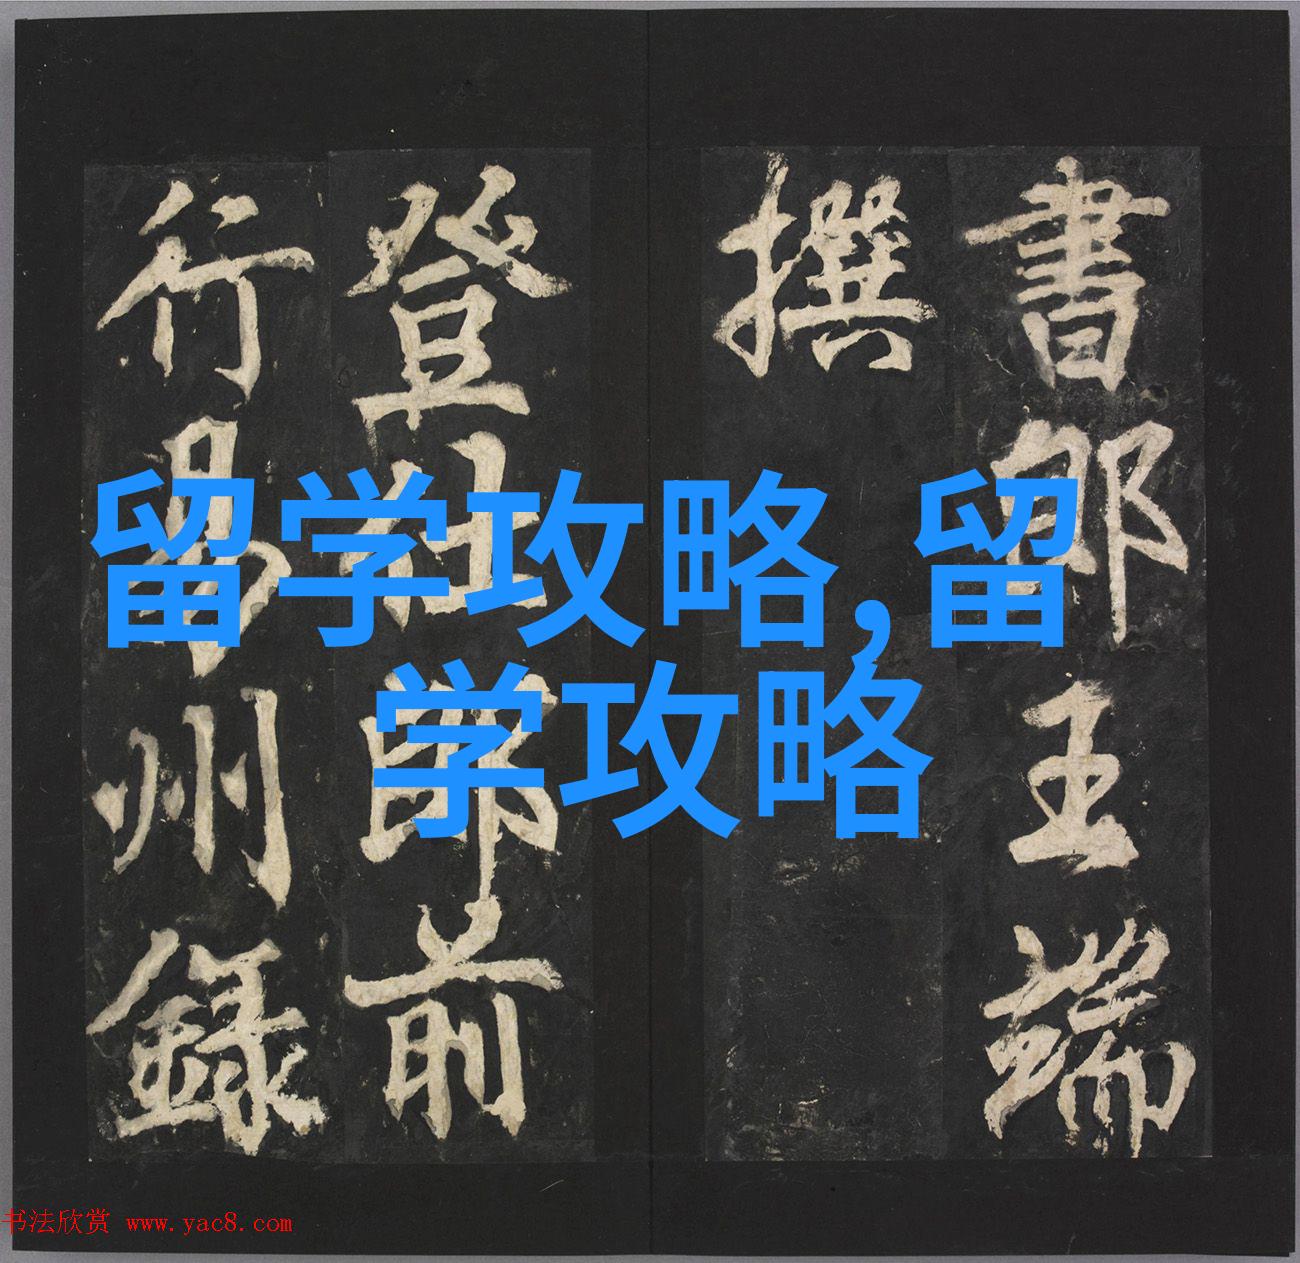 書郎王端
撰
登仕郎前
行易州錄
留学攻略,留
学攻略
书法欣赏 www.yac8.com